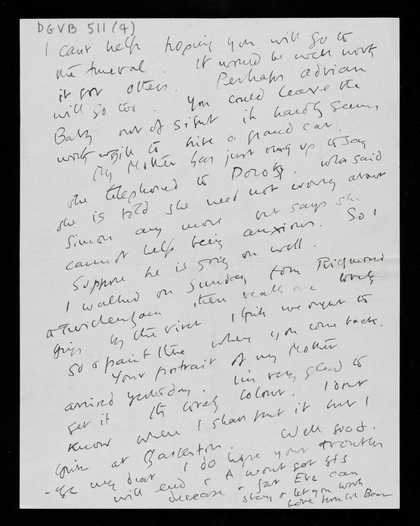 DGVB 511 (4)
I cant help hoping you will go to
the funeral. It would be well worth
it for others. Perhaps Adrian
will go too. You could leave the
Baby out of sight it hardly seems
worth while to hire a grand car.
My Mother has just rung up to say
she telephoned to Dorothy. who said
she is told she need not worry about
Simon any more but says she
cannot help being anxious. So I
suppose he is going on well.
I walked on Sunday from Richmond
to Twickenham
by the river I think we ought to
go & paint there when you come back.
Your portrait of my Mother
arrived yesterday. I'm very glad to
get it its lovely colour. I dont
know where I shall put it but I
think at Charleston. Well God.
bye my dear I do hope your troubles
will end & A wont get
decrease & that Eve can
stay & let you work
love from